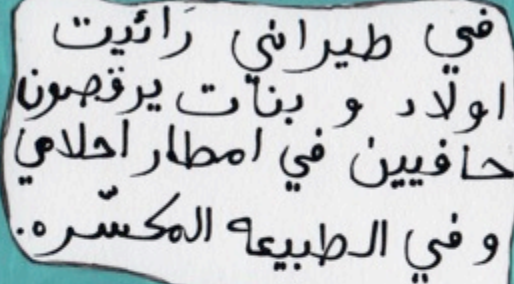 في طيراني رَائيت
اولاد و بنات يرقصون
حافيين في امطار احلامي
و في الطبيعه المكسّره.